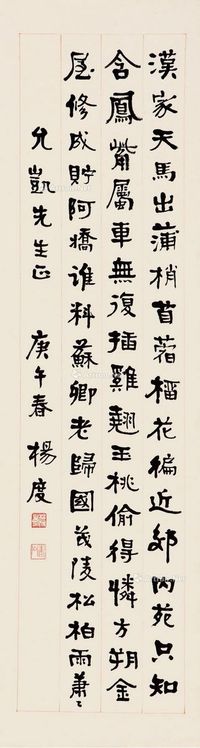 漢家天馬出蒲梢苜蓿榴花徧近郊內苑只知
含鳳觜屬車無復插雞翹玉桃偷得憐方朔金
屋修成貯阿嬌誰料蘇卿老歸國茂陵松柏雨蕭〻
允凱先生正 庚午春 楊度